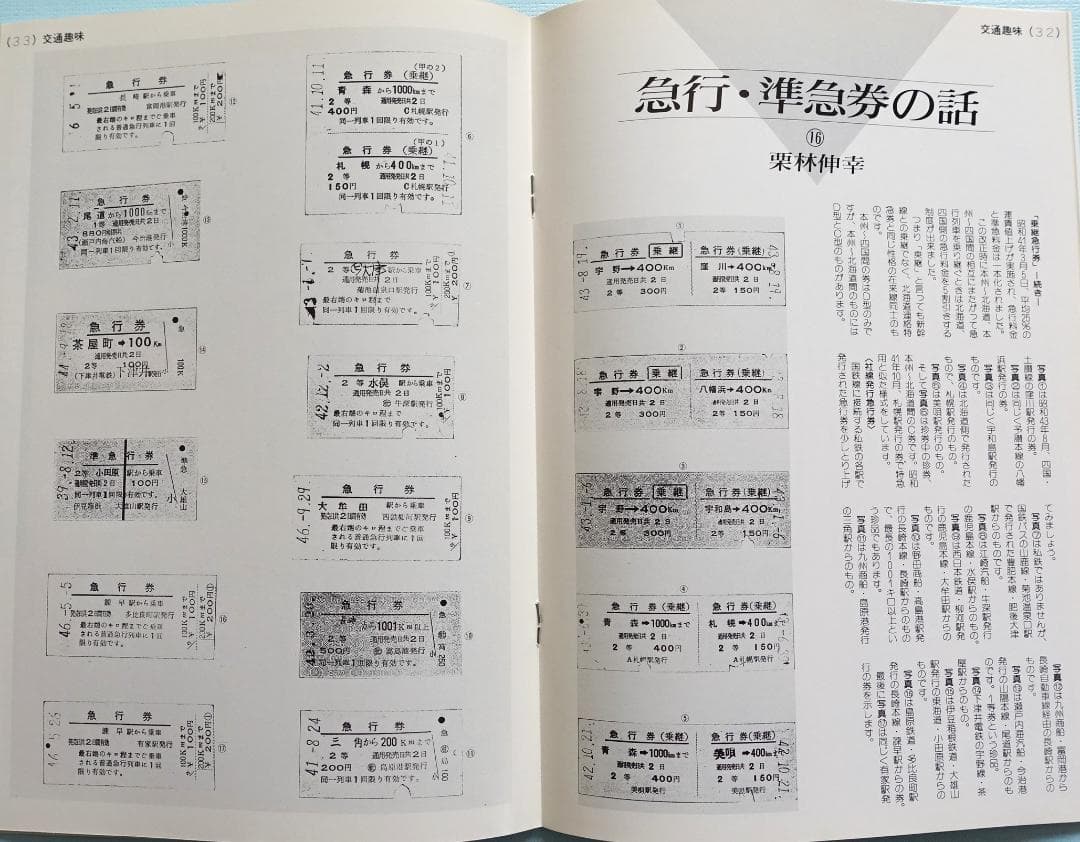 交通趣味 (32)
急行・準急券の話
⑯
栗林伸幸
「乗継急行券」ー続きー
昭和41年3月5日、平均25%の
運賃値上げが実施され、急行料金
と準急料金は一本化されました。
この改正時に本州〜北海道、本
州〜四国間の相互にまたがって急
行列車を乗り継ぐときは北海道、
四国側の急行料金を5割引きする
制度が出来ました。
つまり「乗継」と言っても新幹
線との乗継でなく、北海道連絡特
急券と同じ性格の在来線同士のも
のです。
本州〜四国間の券はD型のみで
すが、本州〜北海道間のものには
D型とC型のものがあります。
写真①は昭和43年8月、四国・
土讃線の窪川駅発行の券。
写真②は同じく予讃本線の八幡
浜駅発行の券。
写真③は同じく宇和島駅発行の
ものです。
写真④は北海道側で発行された
もので、札幌駅発行のもの。
写真⑤は美唄駅発行のもの。
そして写真⑥は珍券中の珍券、
本州〜北海道間のC券です。昭和
41年10月、札幌駅発行の券で特急
用と似た様式をしています。
〈社線発行急行券〉
国鉄線に接続する私鉄の各駅で
発行された急行券を少しとり上げ
てみましょう。
写真⑦は私鉄ではありませんが、
国鉄バスの山鹿線・菊池温泉口駅
で発行された豊肥本線・肥後大津
駅からのものです。
写真⑧は江崎汽船・牛深駅発行
の鹿児島本線・水俣駅からのもの。
写真⑨は西日本鉄道・柳河駅発
行の鹿児島本線・大牟田駅からの
ものです。
写真⑩は野田商船・高島港駅発
行の長崎本線・長崎駅からのもの
で、最長の1001キロ以上とい
う珍品でもあります。
写真⑪は九州商船・島原港発行
の三角駅からのもの。
写真⑫は九州商船・富岡港から
長崎自動車線経由の長崎駅からの
ものです。
写真⑬は瀬戸内海汽船・今治港
発行の山陽本線・尾道駅からのも
のです。1等券という珍品。
写真⑭下津井電鉄の宇野線・茶
屋駅からのもの。
写真⑮は伊豆箱根鉄道・大雄山
駅発行の東海道・小田原駅からの
ものです。
写真⑯は島原鉄道・多比良町駅
発行の長崎本線・諫早駅からの券。
最後に写真⑰は同じく有家駅発
行の券を示します。
①
急行券 乗継
宇野→400Km
通用発売日共2日
2等 300円
急行券(乗継)
窪川→400Km
通用発売日共2日
2等 150円
43-8.19.
②
急行券 乗継
宇野→400Km
通用発売日共2日
2等 300円
急行券(乗継)
八幡浜→400Km
通用発売日共2日
2等 150円
③
急行券 乗継
宇野→400Km
通用発売日共2日
2等 300円
急行券(乗継)
宇和島→400Km
通用発売日共2日
2等 150円
④
急行券(乗継)
青森→1000kmまで
通用発売日共2日
2等 400円
A札幌駅発行
急行券(乗継)
札幌→400kmまで
通用発売日共2日
2等 150円
A札幌駅発行
⑤
急行券(乗継)
青森→1000kmまで
通用発売日共2日
2等 400円
美唄駅発行
急行券(乗継)
美唄→400kmまで
通用発売日共2日
2等 150円
美唄駅発行
42.10.21.
(33) 交通趣味
(甲の2)
急行券(乗継)
青森から1000kmまで
2等 通用発売日共2日
400円 C札幌駅発行
同一列車1回限り有効です。
41.10.11
(甲の1)
急行券(乗継)
札幌から400kmまで
2等 通用発売日共2日
150円 C札幌駅発行
同一列車1回限り有効です。
⑥
急行券
2等 大津駅から乗車
通用発売日共2日
菊池温泉口駅発行
最右端のキロ程まで
同一列車1回限り有効です。
100Kmまで 100円
200Kmまで 200円
⑦
急行券
2等 水俣駅から乗車
通用発売日共2日
牛深駅発行
最右端のキロ程まで
同一列車1回限り有効です。
42.12.-2
100Kmまで 100円
⑧
急行券
大牟田 駅から乗車
発売日から2日間有効 西鉄柳河駅発行
最右端のキロ程までご乗車
される普通急行列車に1回
限り有効です。
46.-9.29
100Kmまで 100円
⑨
急行券
長崎から1001Km以上
2等 通用発売日共2日
500円 高島港発行
同一列車1回限り有効です。
⑩
急行券
三角から200Kmまで
2等 通用発売日共2日
200円 島原港駅発行
同一列車1回限り有効です。
41.-8.24
⑪
急行券
長崎駅から乗車
発売日から2日間有効 富岡港駅発行
最右端のキロ程までご乗車
される普通急行列車に1回
限り有効です。
100Kmまで 100円
200Kmまで 200円
⑫
急行券
尾道から1000Kmまで
1等 通用発売日共2日
880円
(瀬戸内海汽船) 今治港発行
同一列車1回限り有効です
43.-2.11
⑬
急行券
茶屋町→100Km
通用発売日共2日
2等 100円
(下津井電鉄)
同一列車1回限り有効です
急
100K
⑭
準急行券
2等 小田原駅から乗車
通用発売日共2日 100円
同一列車1回限り有効です。
伊豆箱根 大雄山駅発行
39.-8.12.
準急
小
大雄山
⑮
急行券
諫早駅から乗車
発売日から2日間有効 多比良町駅発行
最右端のキロ程までご乗車
される普通急行列車に1回
限り有効です。
46.-5.-5
100Kmまで 100円
200Kmまで 200円
⑯
急行券
諫早駅から乗車
発売日から2日間有効 有家駅発行
最右端のキロ程までご乗車
される普通急行列車に1回
限り有効です。
100Kmまで 100円
200Kmまで 200円
⑰